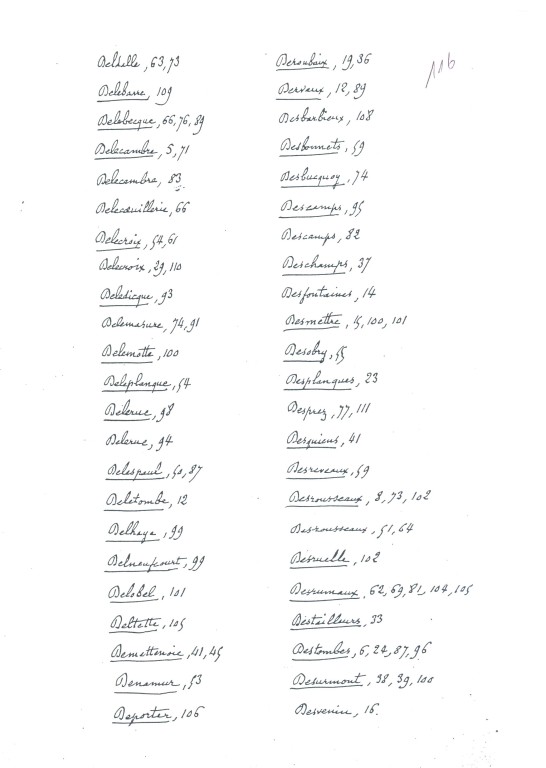 116
Delsalle, 63, 73
Delebarre, 109
Delebecque, 66, 76, 89
Delecambre, 5, 71
Delecambre, 83
Delecœuillerie, 66
Delecroix, 54, 61
Delecroix, 29, 110
Deledicque, 93
Delemasure, 74, 91
Delemotte, 100
Deleplanque, 54
Delerue, 98
Delerue, 94
Delespaul, 50, 87
Deletombe, 12
Delhaye, 99
Delneufcourt, 99
Delobel, 101
Deltette, 105
Demettenoie, 41, 45
Denamur, 53
Deporter, 106
Deroubaix, 19, 36
Dervaux, 12, 89
Desbarbieux, 108
Desbonnets, 59
Desbucquoy, 74
Descamps, 95
Descamps, 82
Deschamps, 37
Desfontaines, 14
Desmettre, 15, 100, 101
Desobry, 55
Desplanques, 23
Desprez, 77, 111
Desquiens, 41
Desreveaux, 59
Desrousseaux, 8, 73, 102
Desrousseaux, 51, 64
Desruelle, 102
Desrumaux, 62, 69, 81, 104, 105
Destailleurs, 33
Destombes, 6, 24, 87, 96
Desurmont, 38, 39, 100
Desvenin, 16